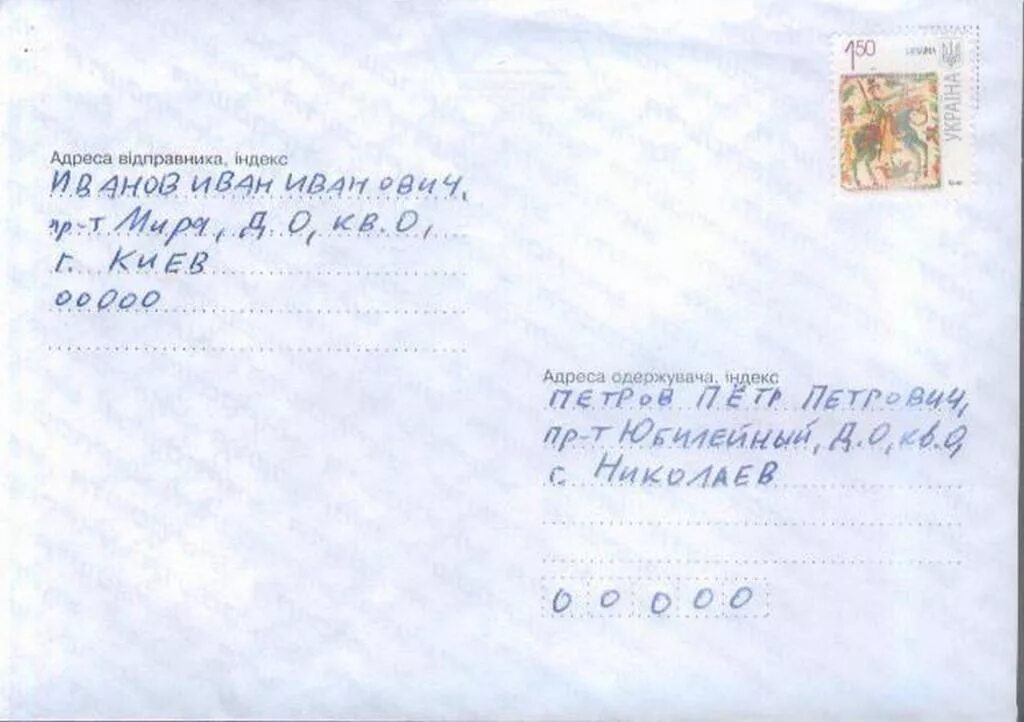 1,50
УКРАЇНА
Адреса відправника, індекс
ИВАНОВ ИВАН ИВАНОВИЧ,
пр-т Мира, Д.О, кв.О,
г. КИЕВ
00000
Адреса одержувача, індекс
ПЕТРОВ ПЁТР ПЕТРОВИЧ,
пр-т Юбилейный, Д.О, кв.О,
г. НИКОЛАЕВ
0 0 0 0 0